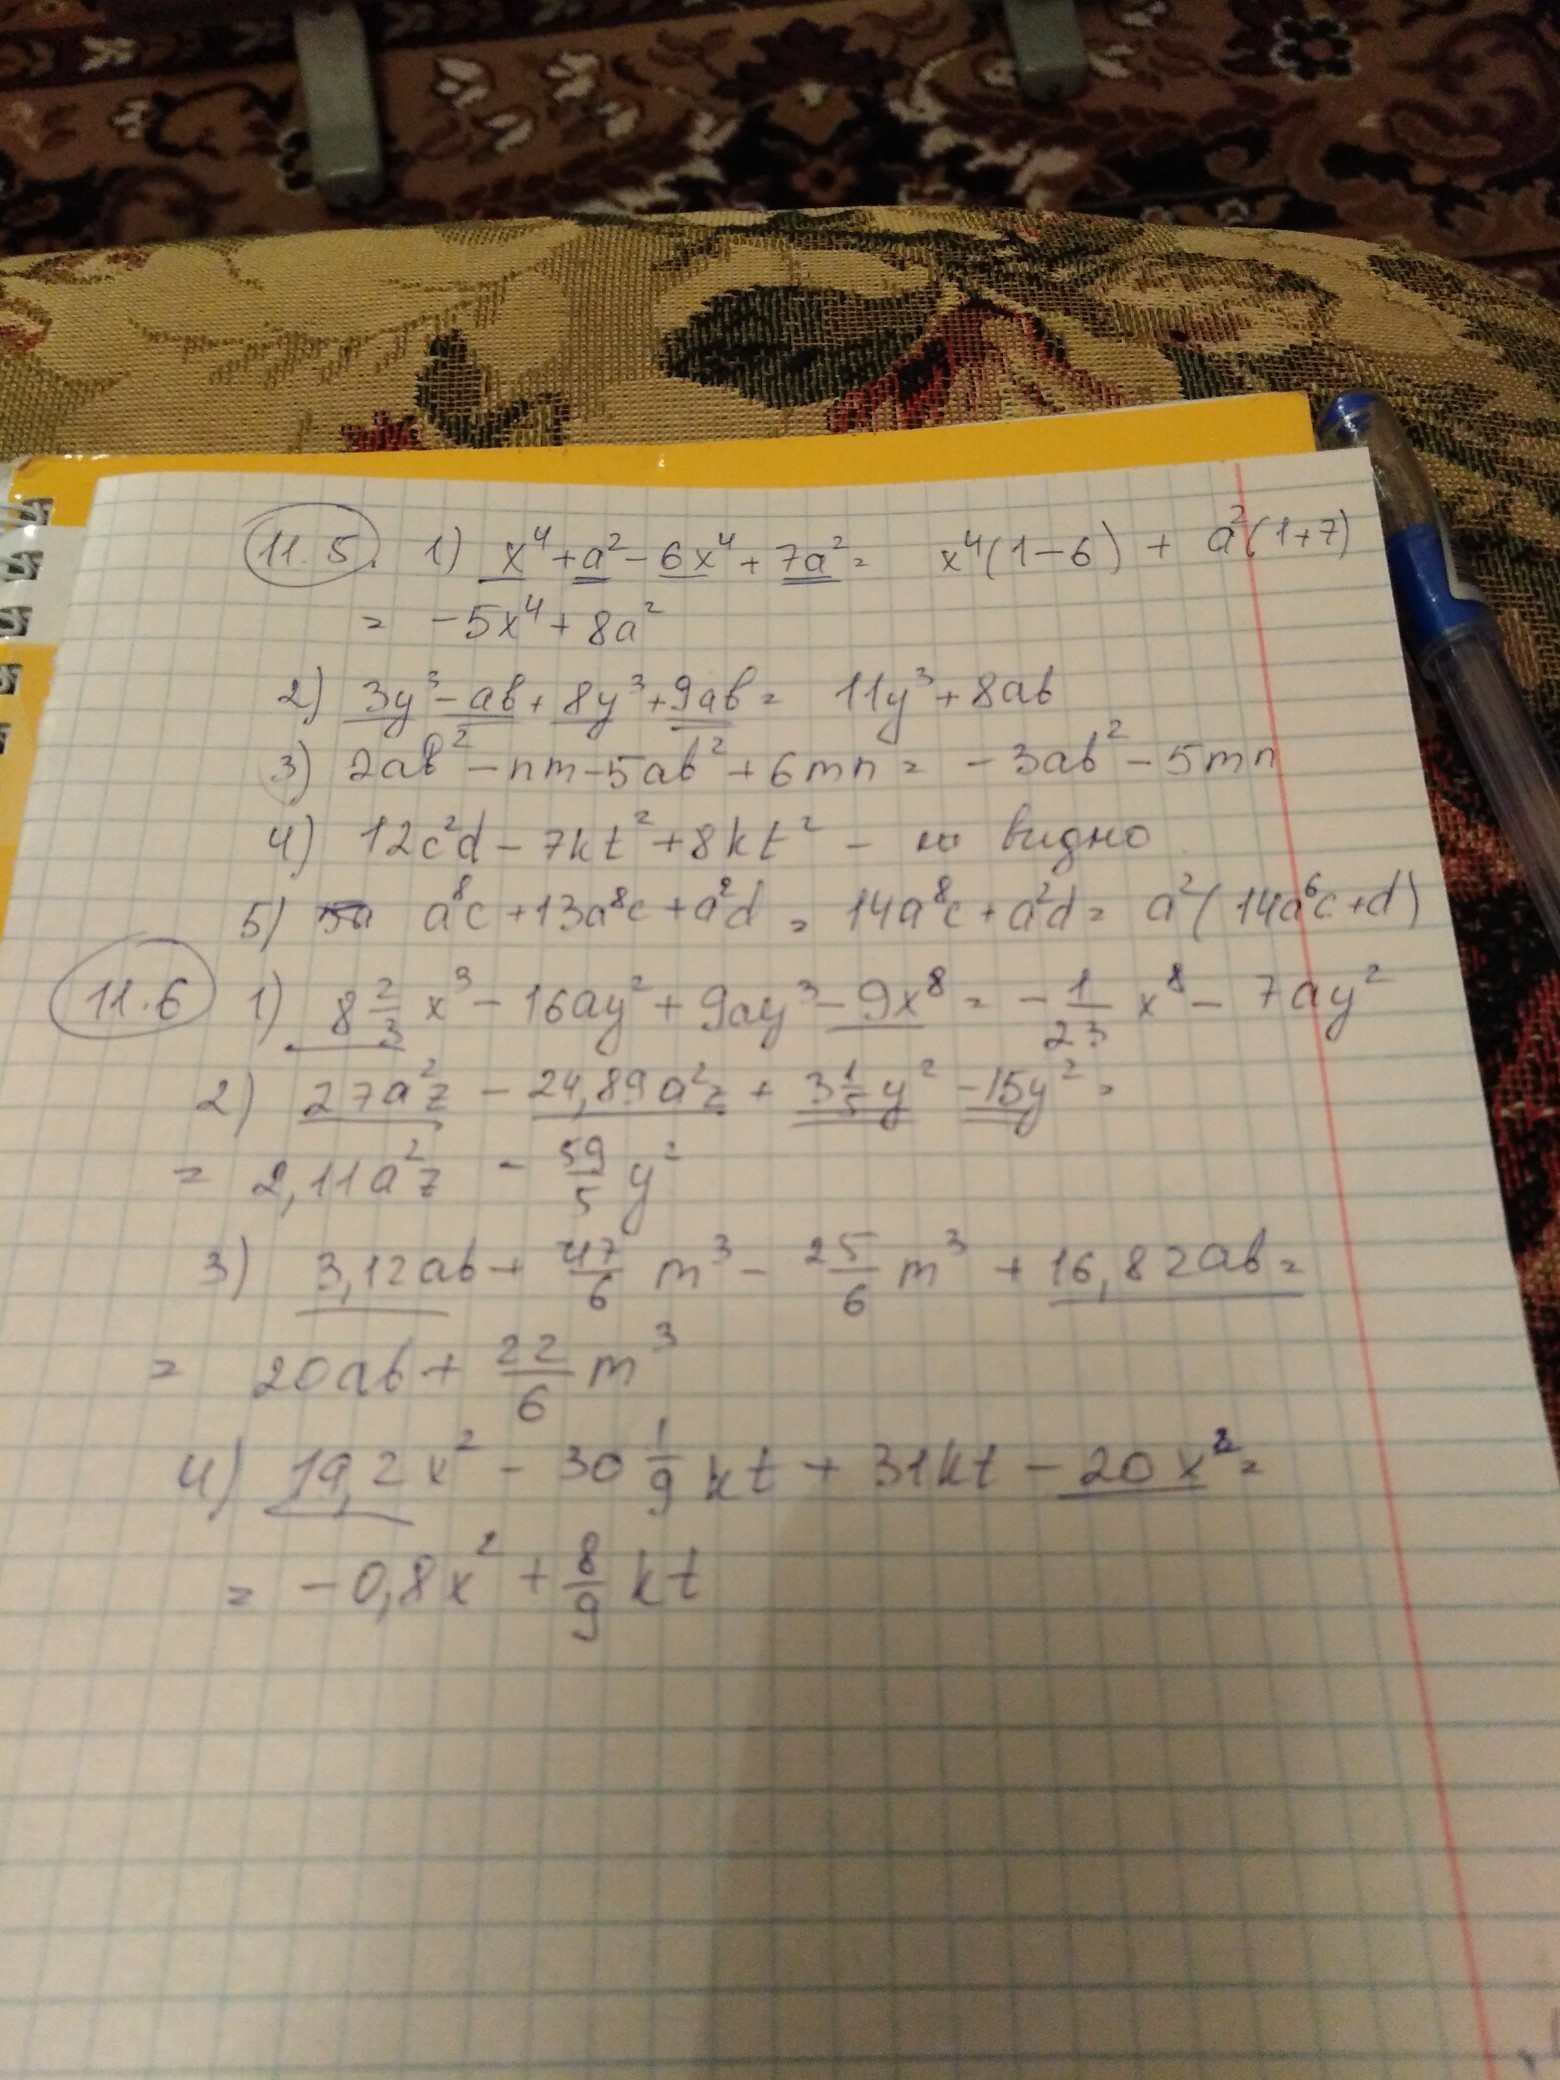 11.5. 1) x⁴ + a² - 6x⁴ + 7a² = x⁴(1-6) + a²(1+7)
= -5x⁴ + 8a²
2) 3y³ - ab + 8y³ + 9ab = 11y³ + 8ab
3) 2ab² - nm - 5ab² + 6mn = -3ab² - 5mn
4) 12c²d - 7kt² + 8kt² - не видно
5) a⁸c + 13a⁸c + a²d = 14a⁸c + a²d = a²(14a⁶c + d)
11.6 1) 8 2/3 x³ - 16ay² + 9ay³ - 9x⁸ = - 1/23 x⁸ - 7ay²
2) 27a²z - 24,89a²z + 3 1/5 y² - 15y² =
= 2,11a²z - 59/5 y²
3) 3,12ab + 47/6 m³ - 25/6 m³ + 16,82ab =
= 20ab + 22/6 m³
4) 19,2x² - 30 1/9 kt + 31kt - 20x² =
= -0,8x² + 8/9 kt